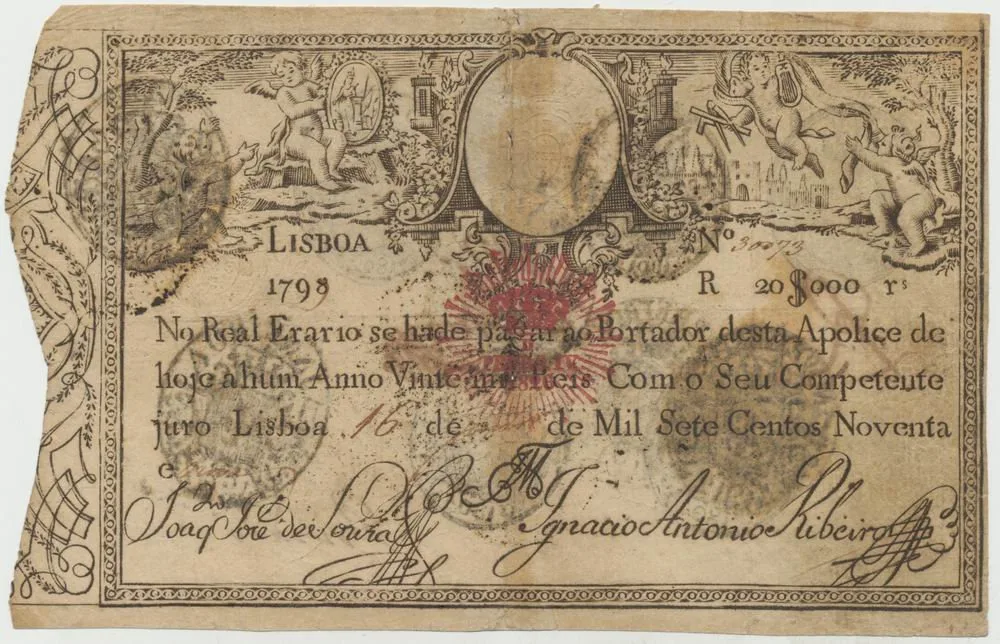 LISBOA
Nº 30073
1798
R 20$000 rˢ
No Real Erario se hade pagar ao Portador desta Apolice de
hoje a hum Anno Vinte mil Reis Com o Seu Competente
juro Lisboa 16 de de Mil Sete Centos Noventa
e
Joaqᵐ José de Souza
Ignacio Antonio Ribeiro